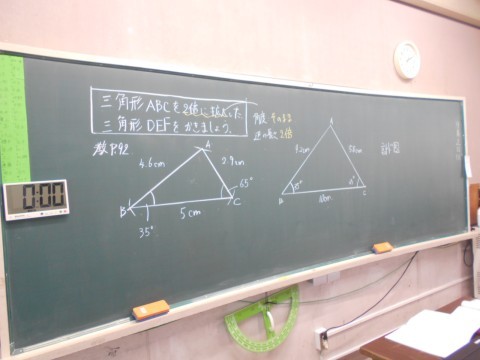 三角形ABCを2倍に拡大した
三角形DEFをかきましょう。
角度 そのまま
辺の長さ 2倍
教P.92
A
4.6cm
2.9cm
65°
B
C
5cm
35°
A
9.2cm
5.8cm
B
C
10cm
0:00